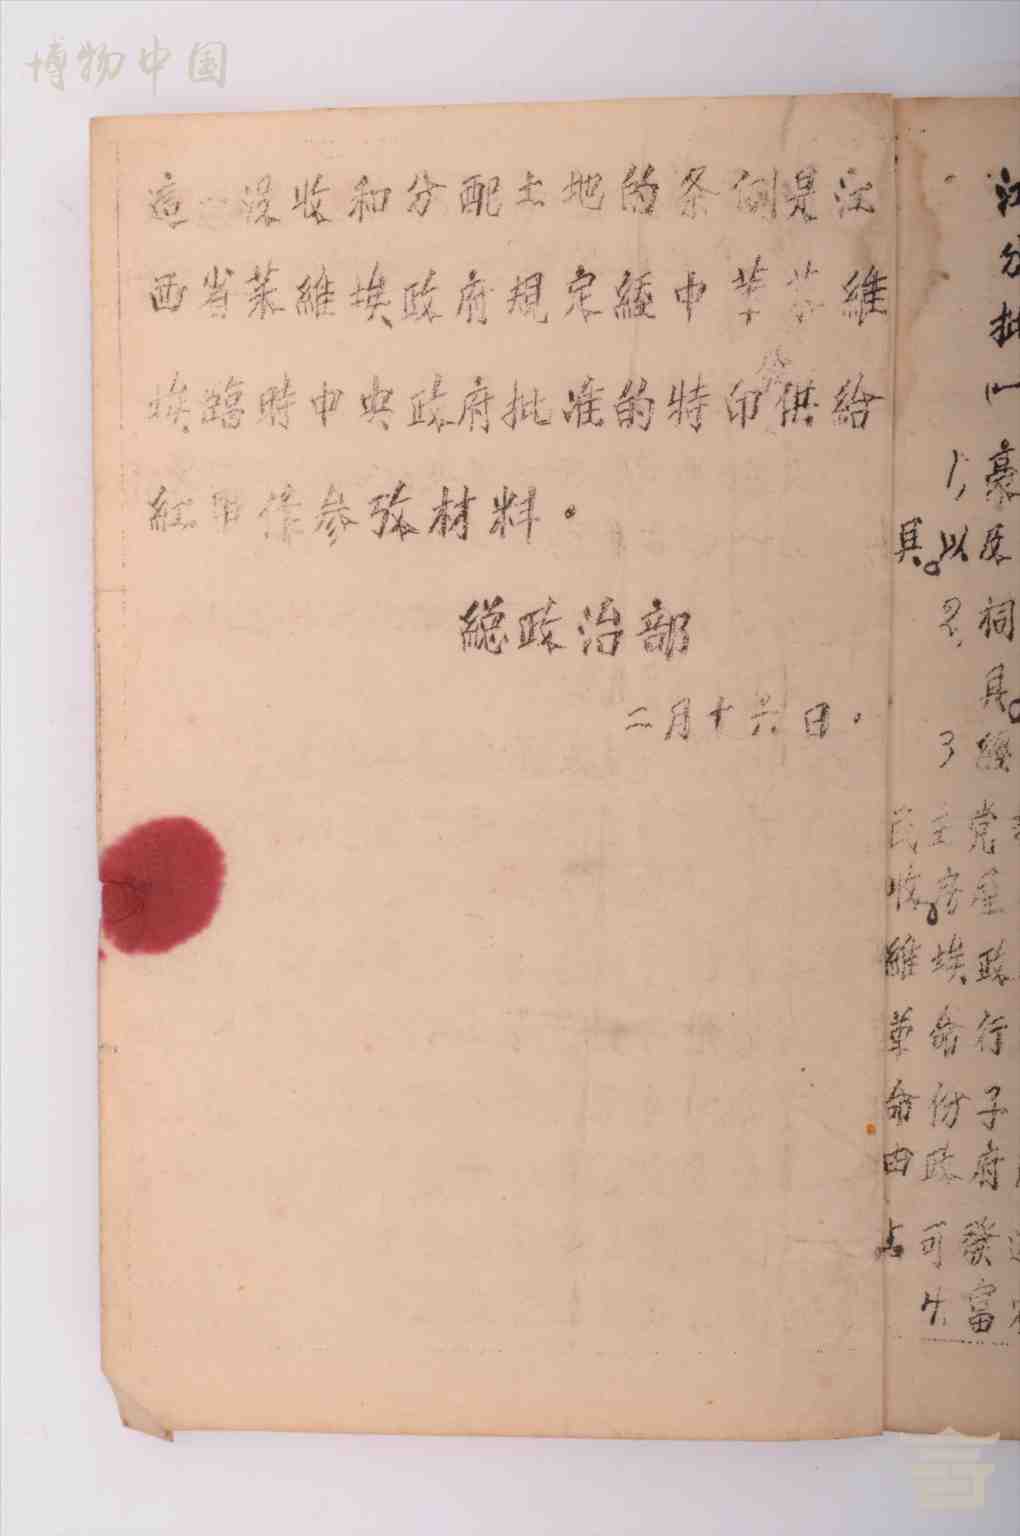 博物中国
這一没收和分配土地的条例是江
西省苏維埃政府規定經中华苏維
埃臨時中央政府批准的特印供給
紅軍作参攷材料。
總政治部
二月十六日。
江
分
批
1,豪
具。以及
2.祠
具。
3
民主党
收。房屋
維埃政
革命行
命份子
由政府
可發
4.富